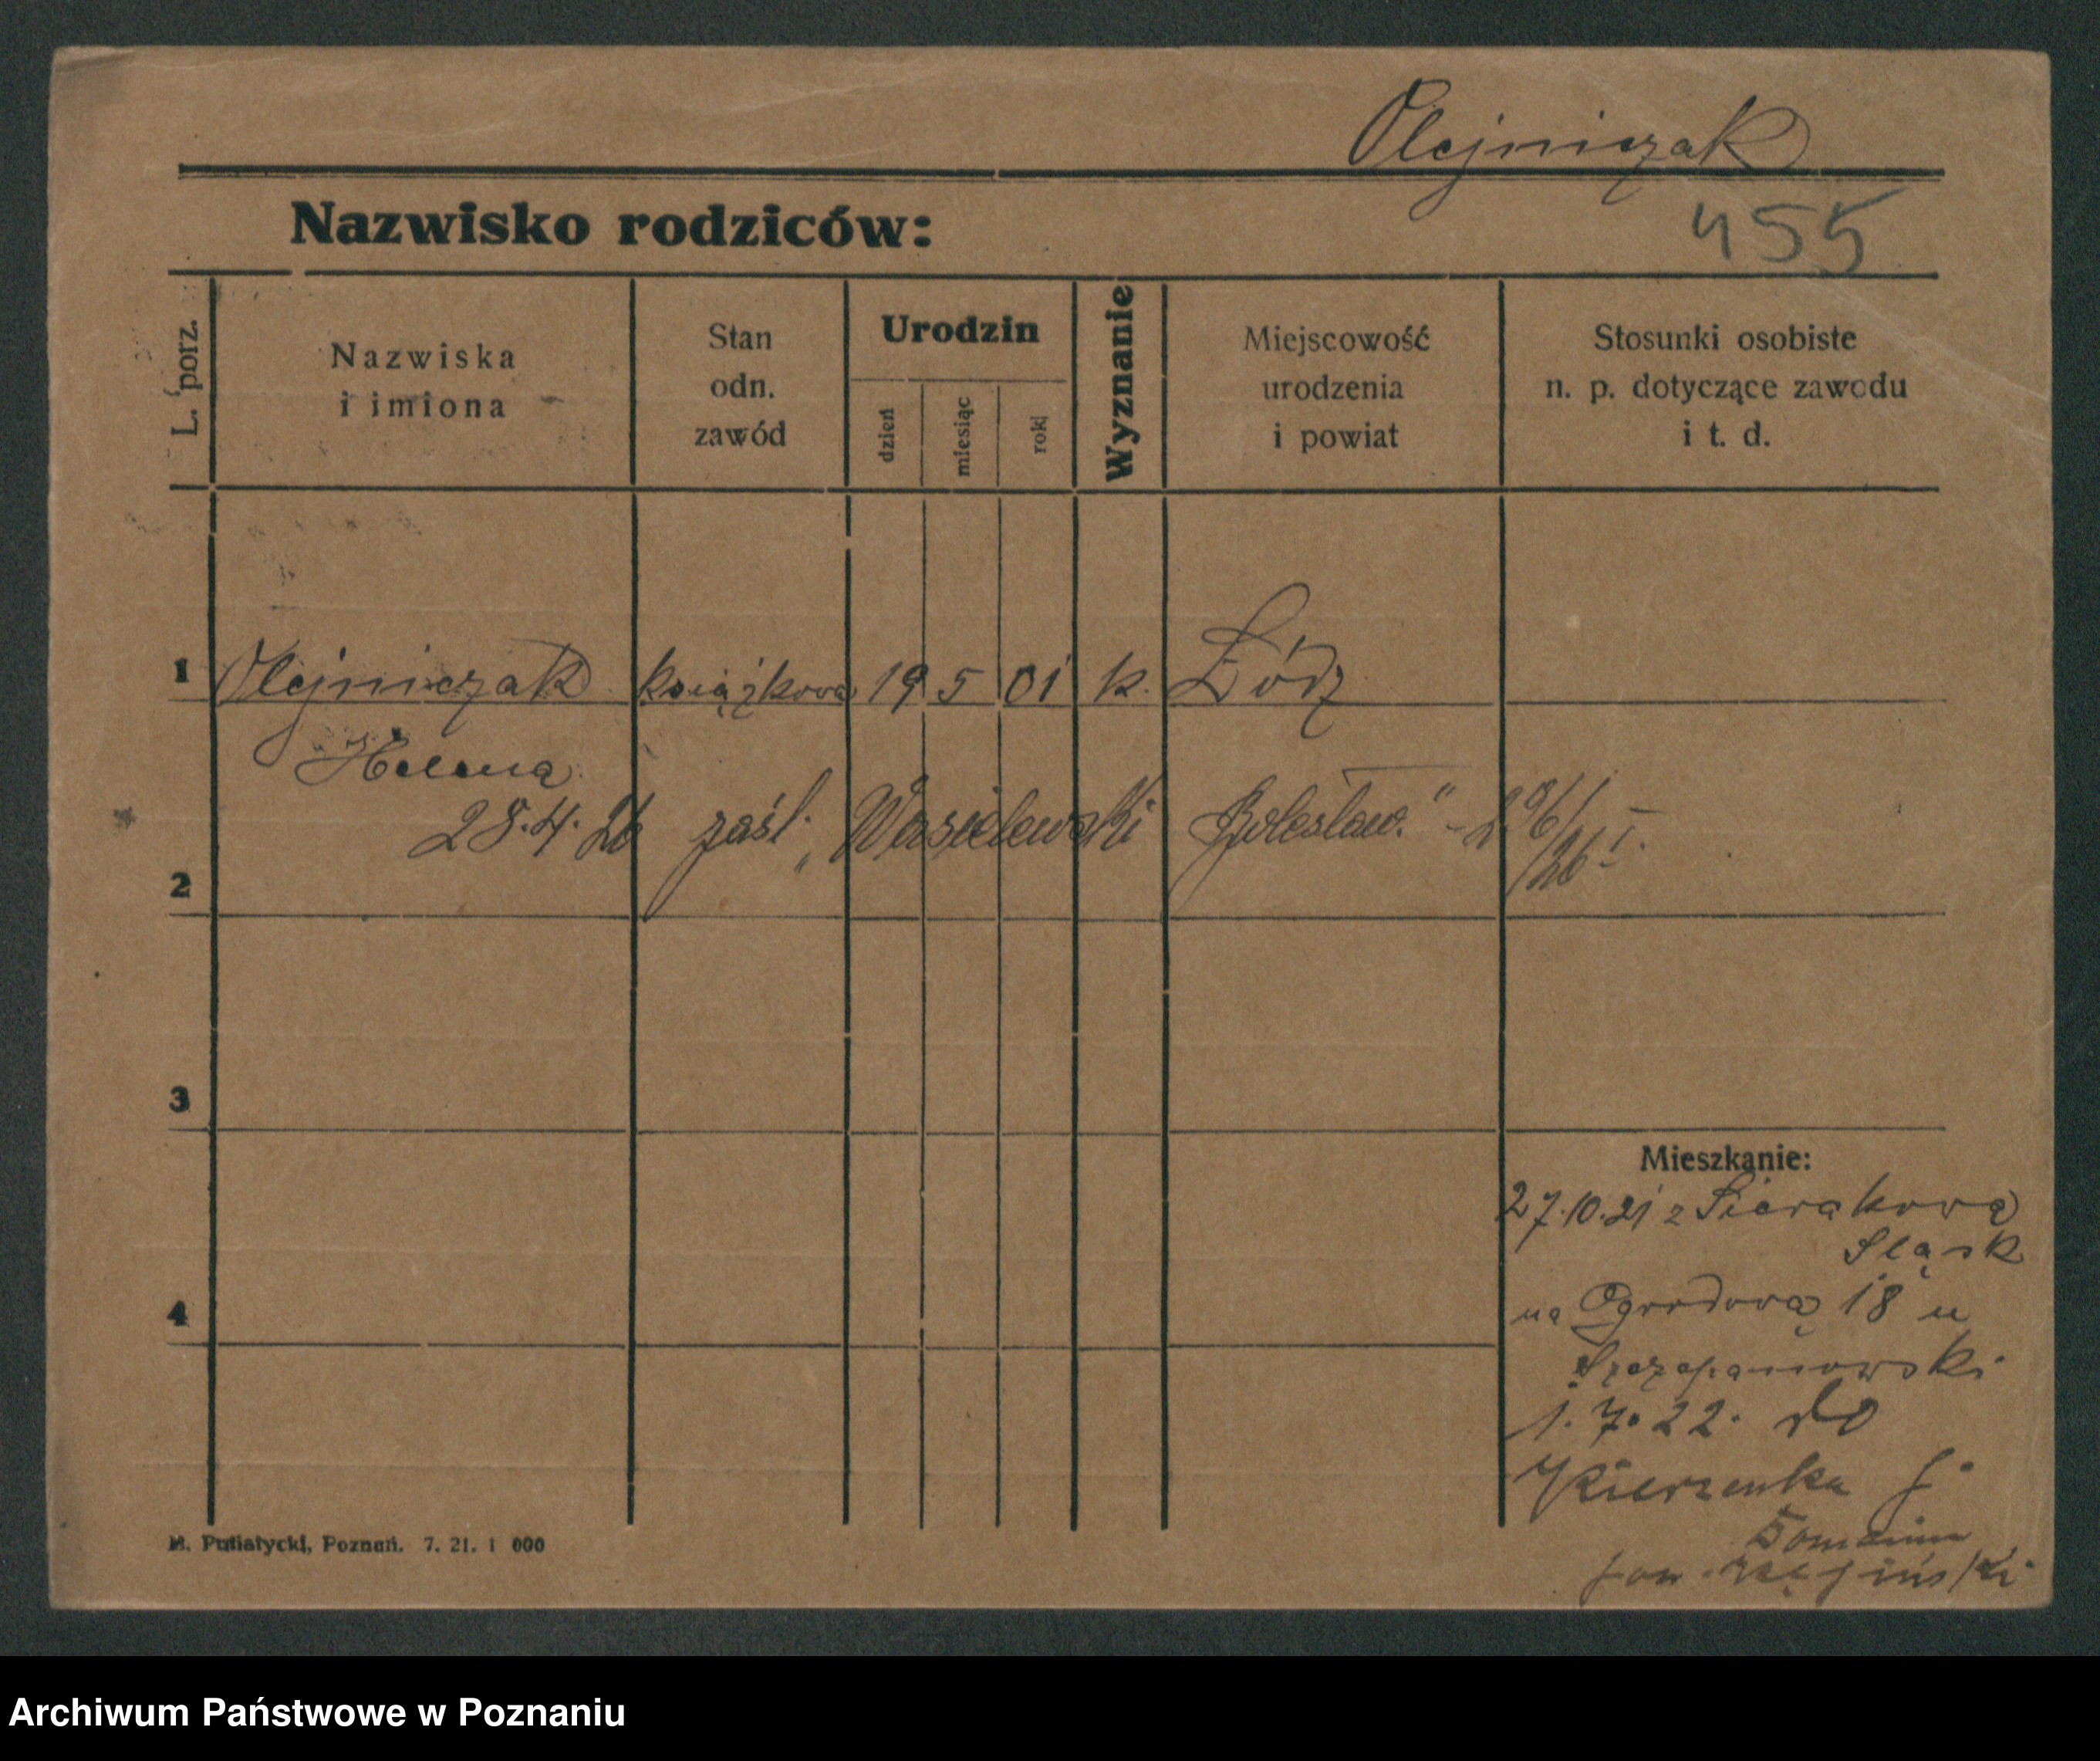 Olejniczak
Nazwisko rodziców:
455
L. porz.
Nazwiska
i imiona
Stan
odn.
zawód
Urodzin
dzień
miesiąc
rok
Wyznanie
Miejscowość
urodzenia
i powiat
Stosunki osobiste
n. p. dotyczące zawodu
i t. d.
1 Olejniczak książkowa 19 5 01 k. Łódz
Helena
28.4.26 zaśl. „Wasielewski Bolesław"
2
3
4
Mieszkanie:
27.10.21 z Sierakowa
Śląsk
na Ogrodową 18 u
Szczepanowski
1.7.22. do
M. Putiatycki, Poznań. 7. 21. 1 000
Archiwum Państwowe w Poznaniu